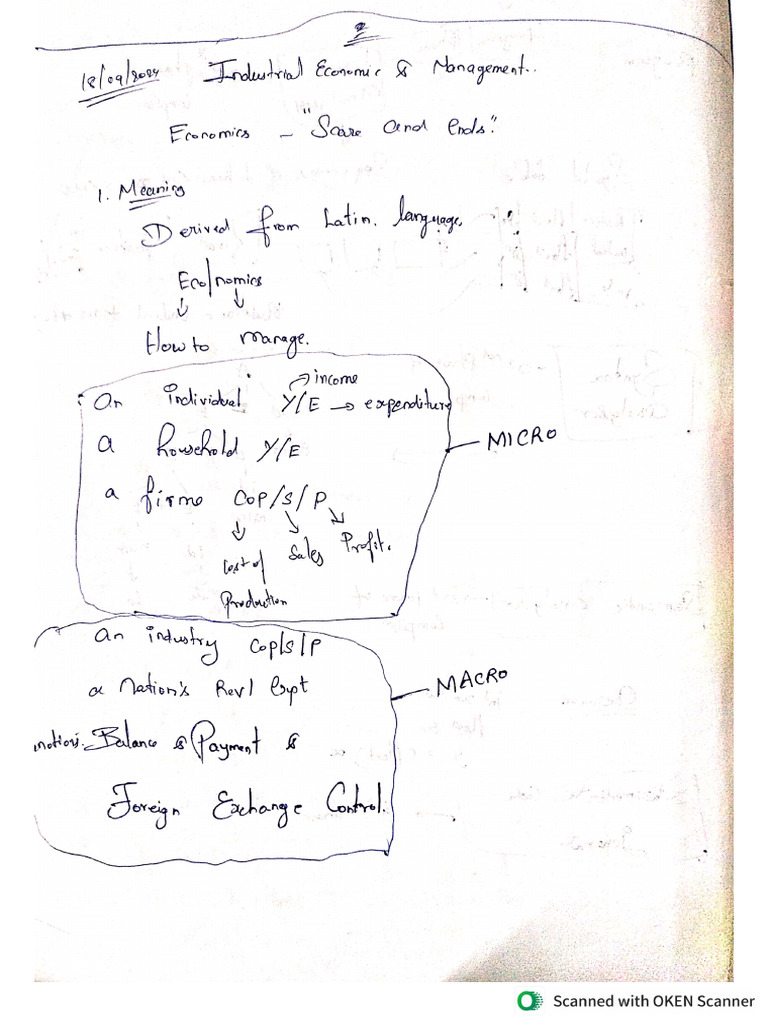 2
18/09/2024 Industrial Economic & Management..
Economics - "Scare and Ends".
1. Meaning
Derived from Latin. language.
Eco/nomics
How to manage.
income
An individual Y/E → expenditure
a household Y/E
MICRO
a firme COP/S/P
Cost of Production
Sales
Profit.
An industry COP/S/P
a Nation's Rev/ Expt
MACRO
Balance & Payment &
Foreign Exchange Control.
Scanned with OKEN Scanner